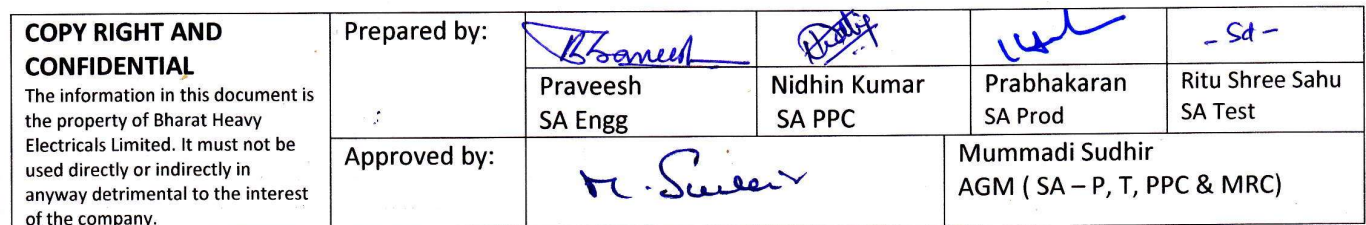 COPY RIGHT AND
CONFIDENTIAL
The information in this document is
the property of Bharat Heavy
Electricals Limited. It must not be
used directly or indirectly in
anyway detrimental to the interest
of the company.
Prepared by:
- Sd -
Praveesh
SA Engg
Nidhin Kumar
SA PPC
Prabhakaran
SA Prod
Ritu Shree Sahu
SA Test
Approved by:
Mummadi Sudhir
AGM ( SA – P, T, PPC & MRC)